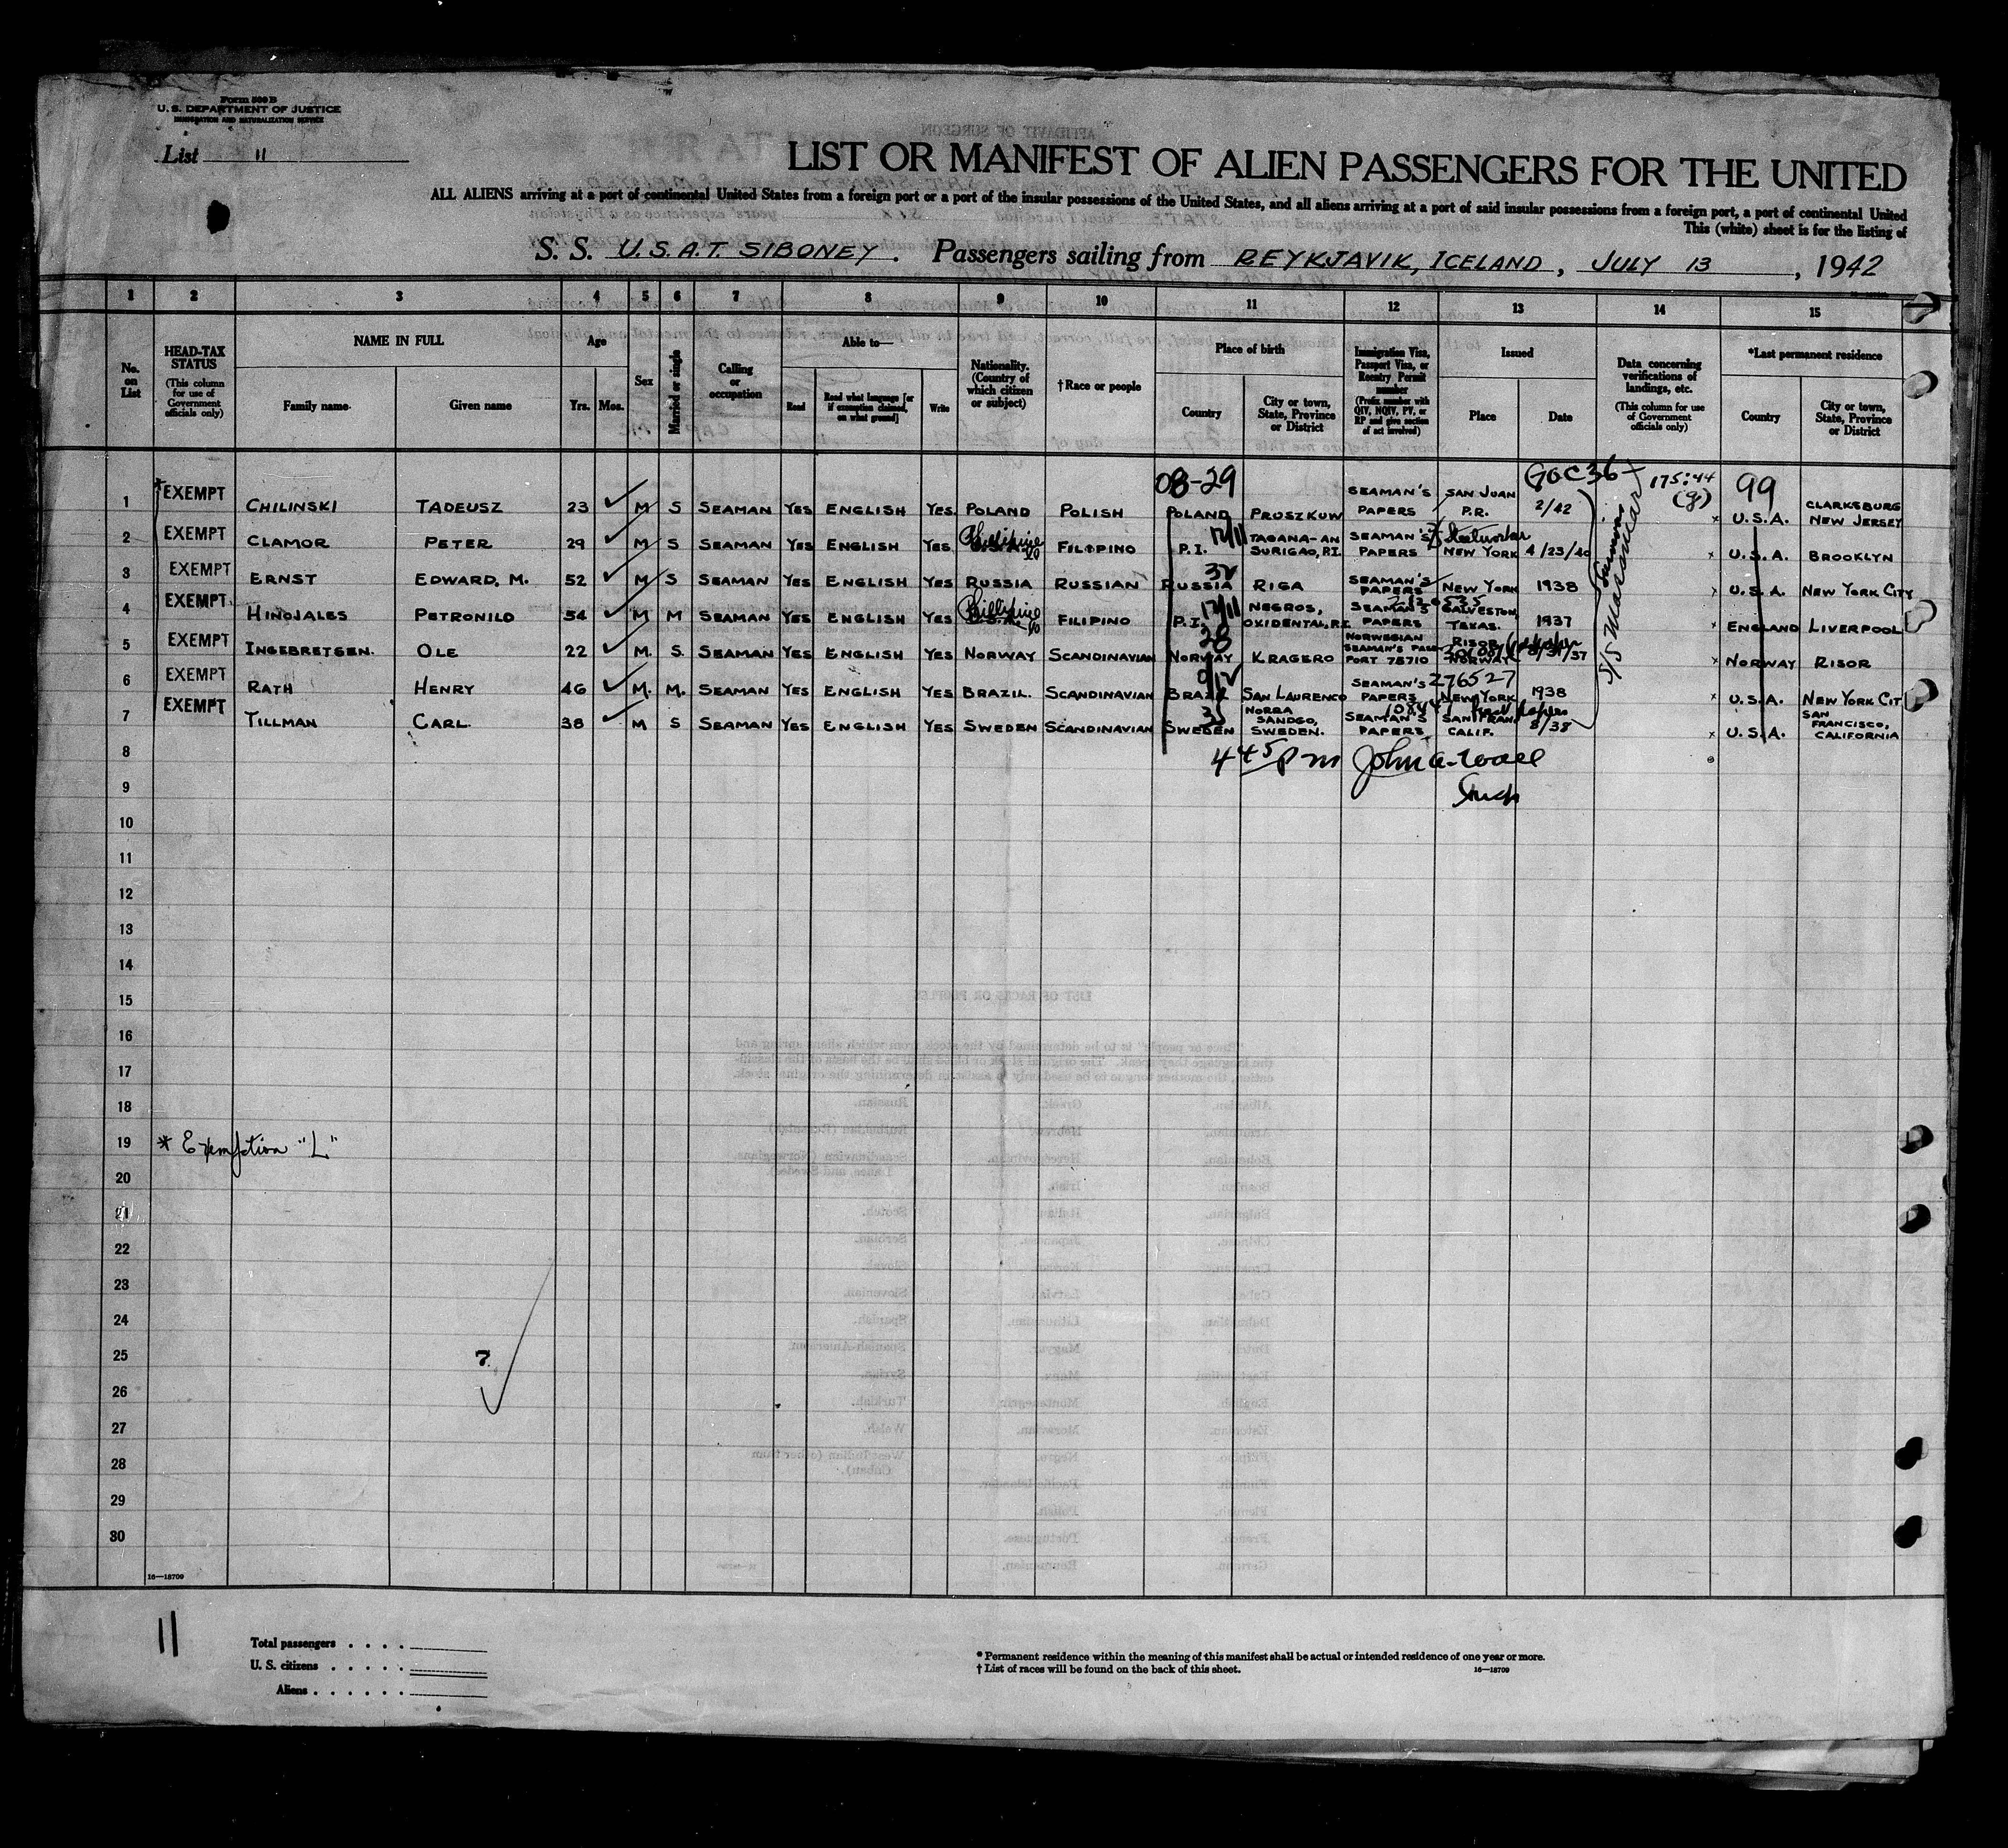 Form 500 B
U. S. DEPARTMENT OF JUSTICE
IMMIGRATION AND NATURALIZATION SERVICE
List 11
LIST OR MANIFEST OF ALIEN PASSENGERS FOR THE UNITED
ALL ALIENS arriving at a port of continental United States from a foreign port or a port of the insular possessions of the United States, and all aliens arriving at a port of said insular possessions from a foreign port, a port of continental United
This (white) sheet is for the listing of
S. S. U.S.A.T. SIBONEY. Passengers sailing from REYKJAVIK, ICELAND, JULY 13, 1942
1 2 3 4 5 6 7 8 9 10 11 12 13 14 15
No. on List
HEAD-TAX STATUS (This column for use of Government officials only)
NAME IN FULL Family name Given name
Age Yrs. Mos.
Sex
Married or single
Calling or occupation
Able to— Read Read what language [or if exemption claimed, on what ground] Write
Nationality. (Country of which citizen or subject)
†Race or people
Place of birth Country City or town, State, Province or District
Immigration Visa, Passport Visa, or Reentry Permit number (Prefix number with QIV, NQIV, PV, or RP and give section of act involved)
Issued Place Date
Data concerning verifications of landings, etc. (This column for use of Government officials only)
*Last permanent residence Country City or town, State, Province or District
08-29 175:44 (g) 99
1 *EXEMPT CHILINSKI TADEUSZ 23 M S SEAMAN YES ENGLISH YES POLAND POLISH POLAND PRUSZKUW SEAMAN'S PAPERS SAN JUAN P.R. 2/42 x U.S.A. CLARKSBURG NEW JERSEY
2 EXEMPT CLAMOR PETER 29 M S SEAMAN YES ENGLISH YES Phillipine FILIPINO P.I. TAGANA-AN SURIGAO, P.I. SEAMAN'S PAPERS NEW YORK 4/23/40 x U.S.A. BROOKLYN
3 EXEMPT ERNST EDWARD, M. 52 M S SEAMAN YES ENGLISH YES RUSSIA RUSSIAN RUSSIA RIGA SEAMAN'S PAPERS NEW YORK 1938 x U.S.A. NEW YORK CITY
4 EXEMPT HINOJALES PETRONILO 54 M M SEAMAN YES ENGLISH YES Phillipine FILIPINO P.I. NEGROS, OXIDENTAL, P.I. SEAMAN'S PAPERS GALVESTON, TEXAS. 1937 x ENGLAND LIVERPOOL
5 EXEMPT INGEBRETSEN. OLE 22 M. S. SEAMAN YES ENGLISH YES NORWAY SCANDINAVIAN NORWAY KRAGERO NORWEGIAN SEAMAN'S PASSPORT 78710 RISOR NORWAY x NORWAY RISOR
6 EXEMPT RATH HENRY 46 M. M. SEAMAN YES ENGLISH YES BRAZIL. SCANDINAVIAN BRAZIL SAN LAURENCO SEAMAN'S PAPERS 276527 NEW YORK 1938 x U.S.A. NEW YORK CIT
7 EXEMPT TILLMAN CARL. 38 M S SEAMAN YES ENGLISH YES SWEDEN SCANDINAVIAN SWEDEN NORRA SANDGO, SWEDEN. SEAMAN'S PAPERS SAN FRAN. CALIF. 8/38 x U.S.A. SAN FRANCISCO, CALIFORNIA
8 4 45 pm
9
10
11
12
13
14
15
16
17
18
19 * Exemption "L"
20
21
22
23
24
25 7
26
27
28
29
30
16—18709
11
Total passengers
U. S. citizens
Aliens
* Permanent residence within the meaning of this manifest shall be actual or intended residence of one year or more.
† List of races will be found on the back of this sheet. 16—18709